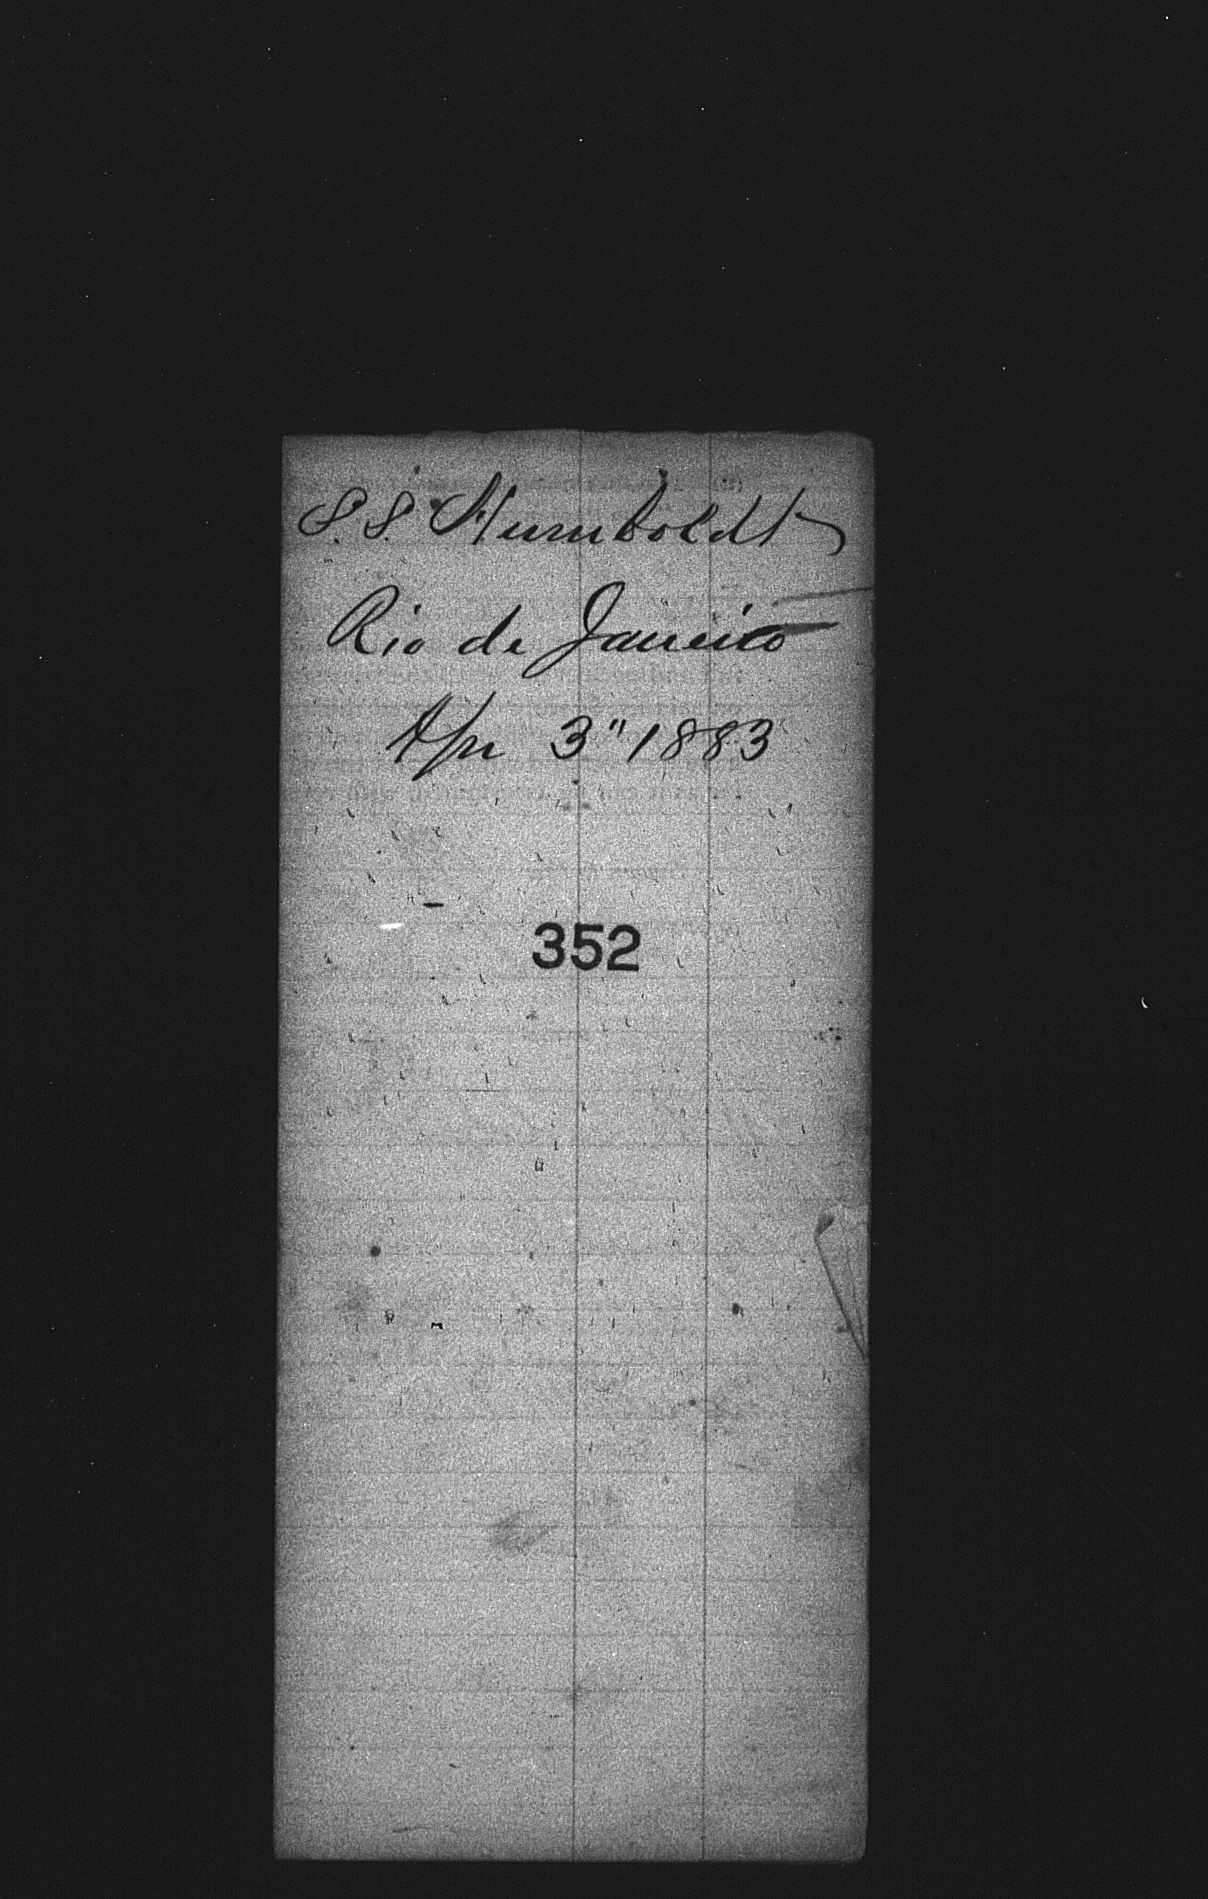 S.S. Humboldt
Rio de Janeiro
Apr 3" 1883
352